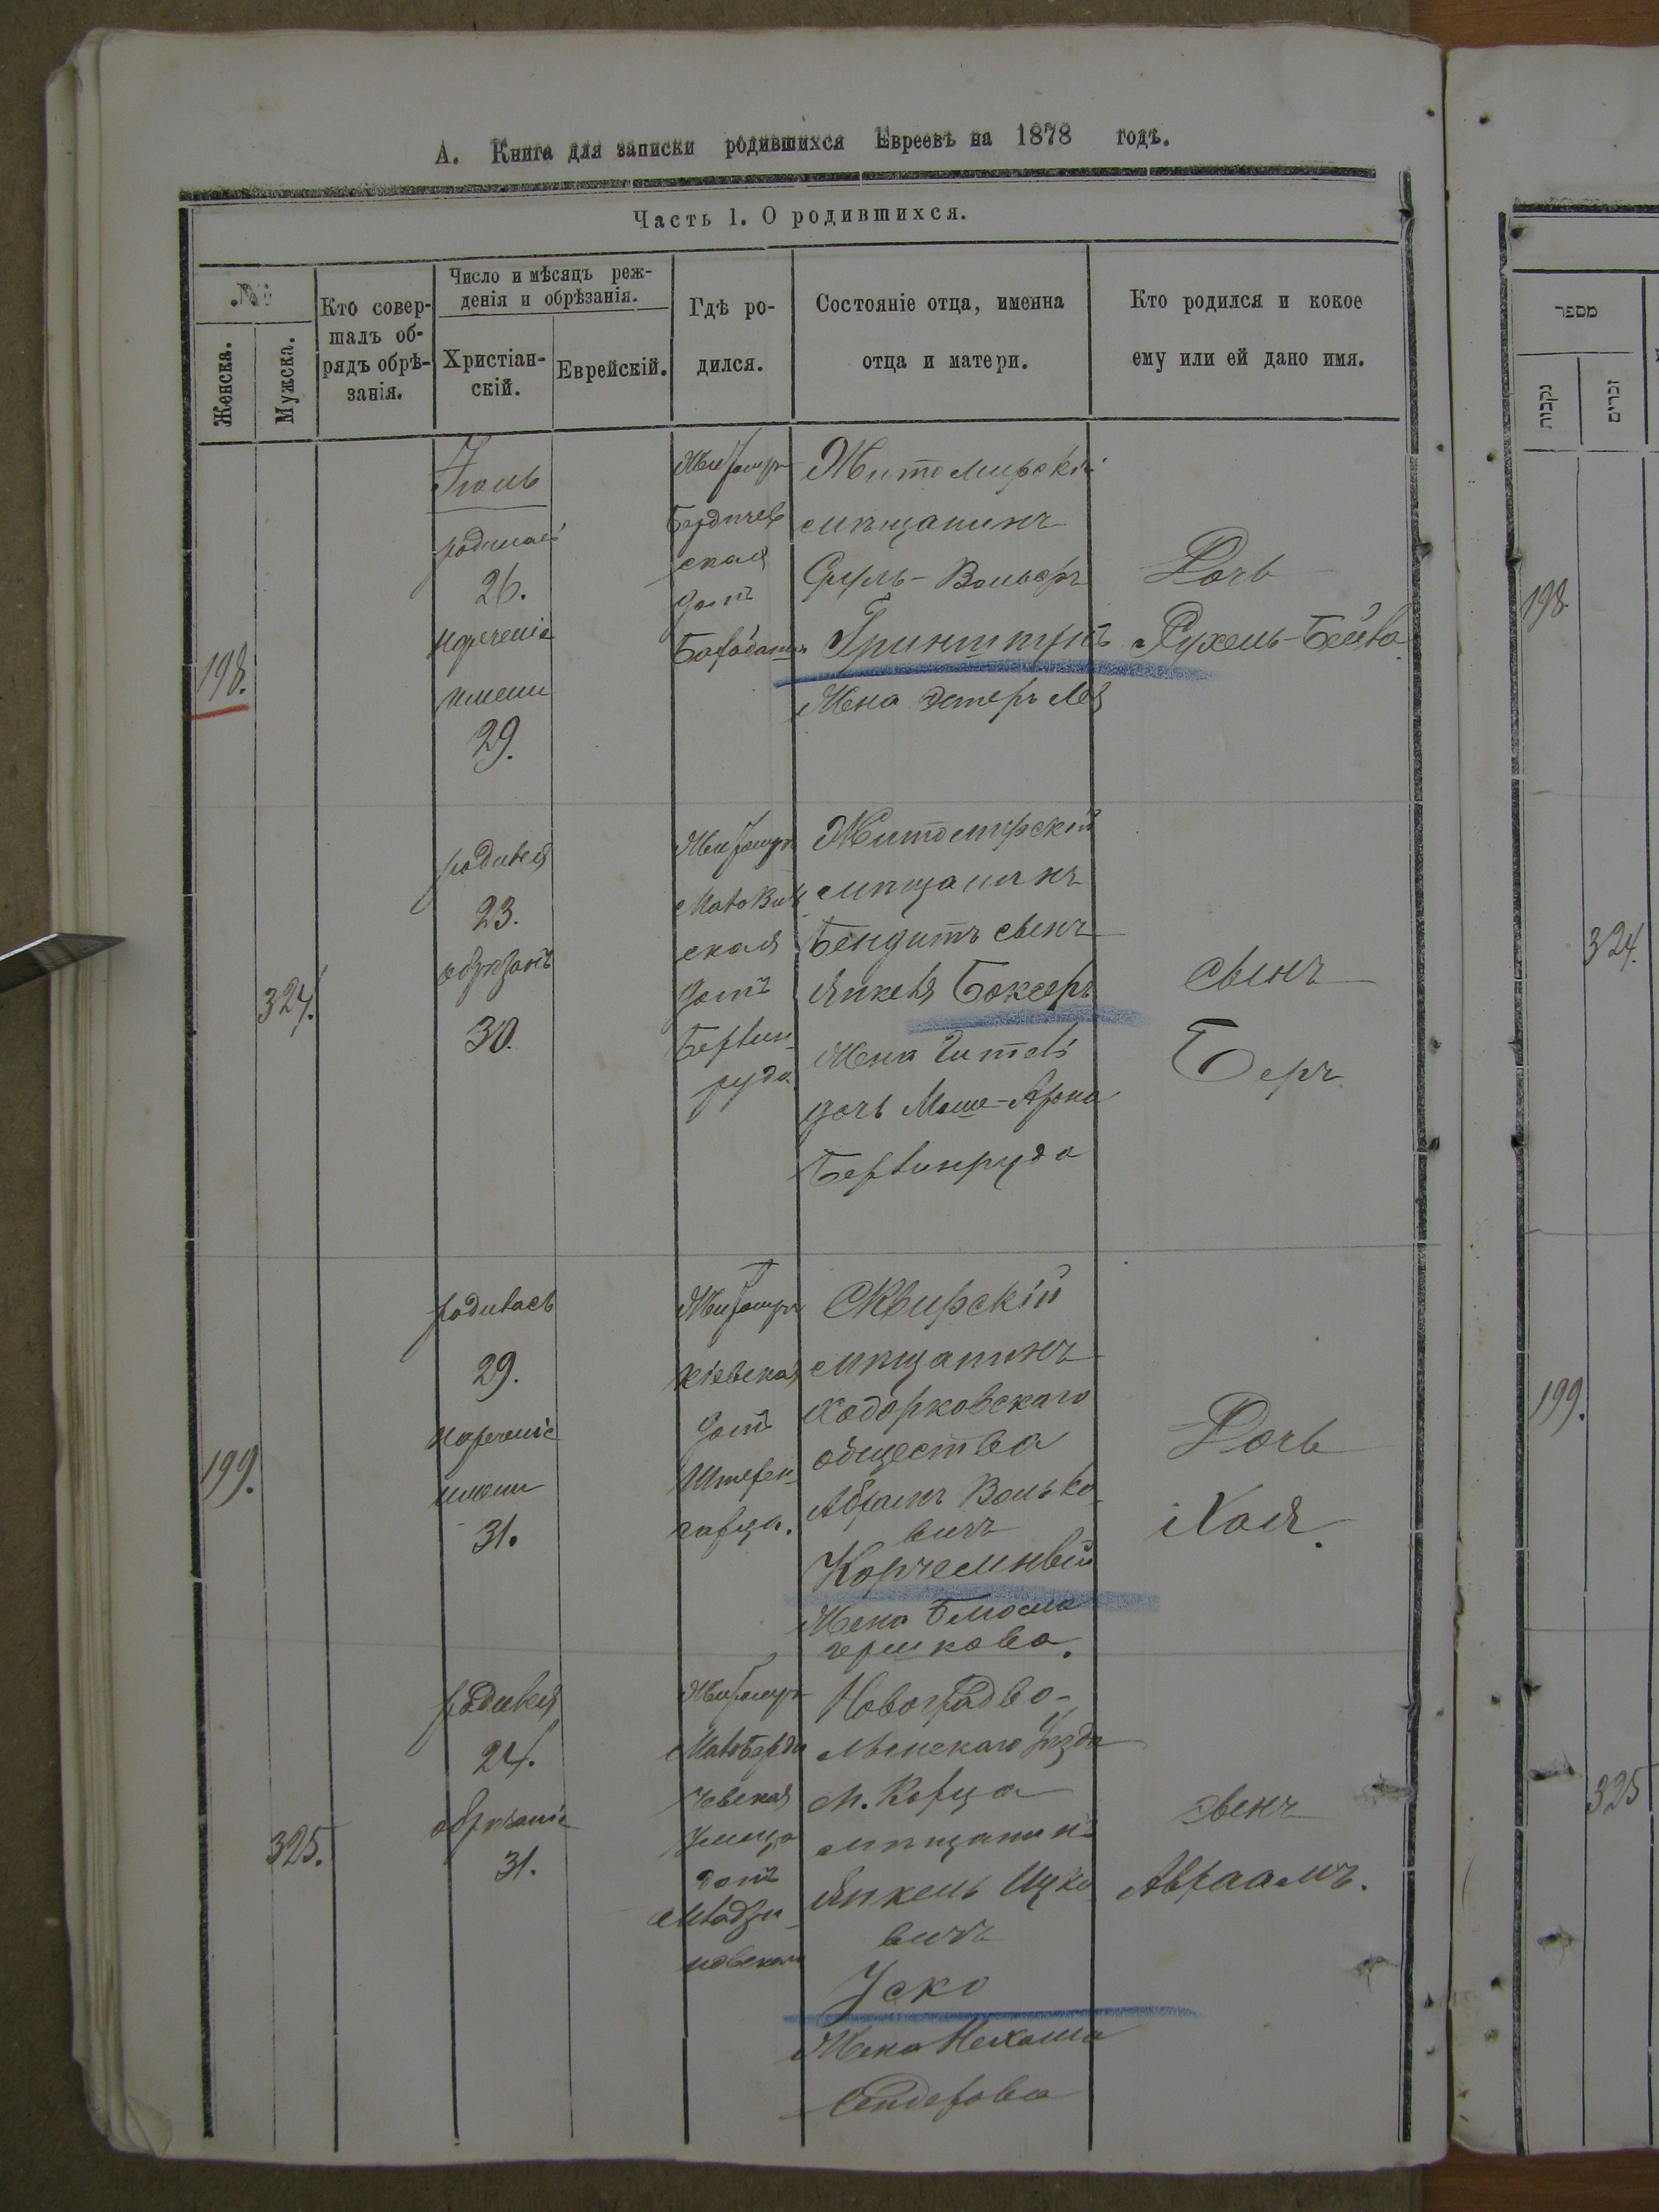 А. Книга для записки родившихся Евреевъ на 1878 годъ.
Часть 1. О родившихся.
№
Женска.
Мужска.
Кто совер-
шалъ об-
рядъ обрѣ-
занія.
Число и мѣсяцъ реж-
денія и обрѣзанія.
Христіан-
скій.
Еврейскій.
Гдѣ ро-
дился.
Состояніе отца, именна
отца и матери.
Кто родился и кокое
ему или ей дано имя.
198.
Іюль
родилась
26.
нареченіе
имени
29.
Житомиръ
Бердичев
ская
домъ
Житомирскій
мѣщанинъ
Сруль-Вольфъ
Гринштейнъ
Жена Эстеръ Лея
Дочь
Рухель-Бейла
324.
родился
23.
обрѣзанъ
30.
Житомиръ
ская
домъ
Берлин
руда
Житомирскій
мѣщанинъ
Бендитъ сынъ
Янкеля Боксеръ
Жена
дочь Моше-Арона
Берлинруда
сынъ
Беръ
199.
родилась
29.
нареченіе
имени
31.
Житомиръ
Кіевская
домъ
Штерен
гарца.
Сквирскій
мѣщанинъ
Ходорковскаго
общества
Абрамъ Волько
вичъ
Корчемный
Жена Блюма
Гершкова.
Дочь
Хая.
325.
родился
24.
обрѣзаніе
31.
Житомиръ
Малоберди
чевская
улица
домъ
Новоградво-
лынскаго уѣзда
м. Корца
мѣщанинъ
Янкель Ицко
вичъ
Уско
Жена Нехама
Сендерова
сынъ
Авраамъ.
מספר
נקבות
זכרים
198
324.
199.
325